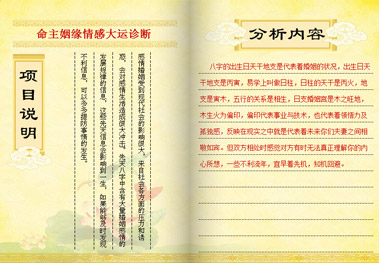 命主姻缘情感大运诊断
项目说明
感情婚姻受到现代社会的影响很大。来自社会各方面的压力和诱
惑，会对感情生活造成很大冲击。先天八字中含有大量婚姻感情的
发展规律的信息，这些先天信息会影响到一生。如果能够及时发现
不利信息，可以多多提防事情的发生。
分析内容
八字的出生日天干地支是代表着婚姻的状况，出生日天
干地支是丙寅，易学上叫做日柱，日柱的天干是丙火，地
支是寅木，五行的关系是相生，日支婚姻宫是木之旺地，
木生火为偏印，偏印代表事业与技术，也代表着领悟力及
孤独感，反映在现实之中就是代表着未来你们夫妻之间相
敬如宾。但双方相处时感觉对方有时无法真正理解你的内
心所想，一些不利流年，宜早着先机，知机回避。